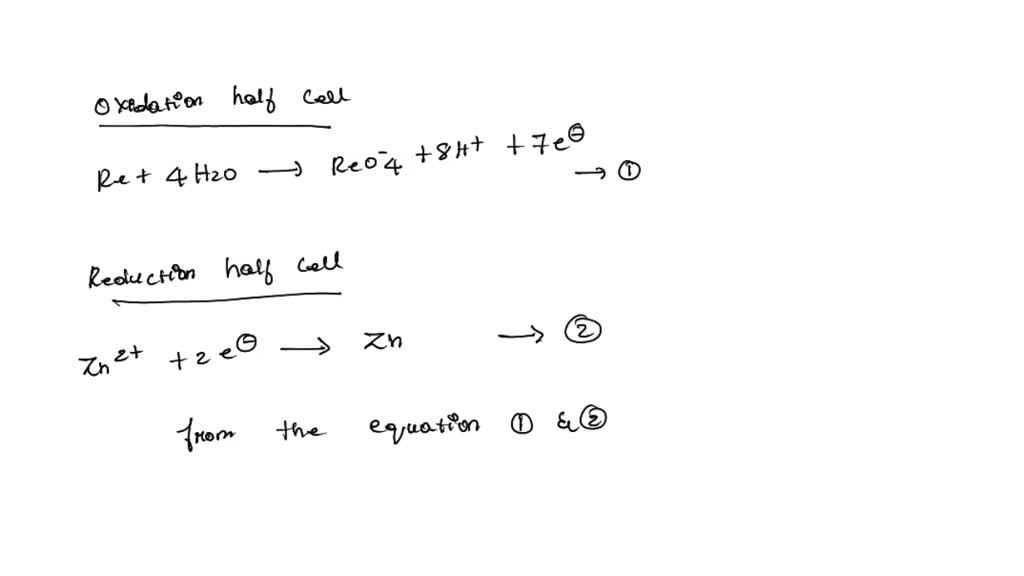 Oxidation half cell
Re + 4H2O → ReO⁻4 + 8H⁺ + 7e⊖
→ ①
Reduction half cell
Zn²⁺ + 2e⊖ → Zn → ②
from the equation ① & ②